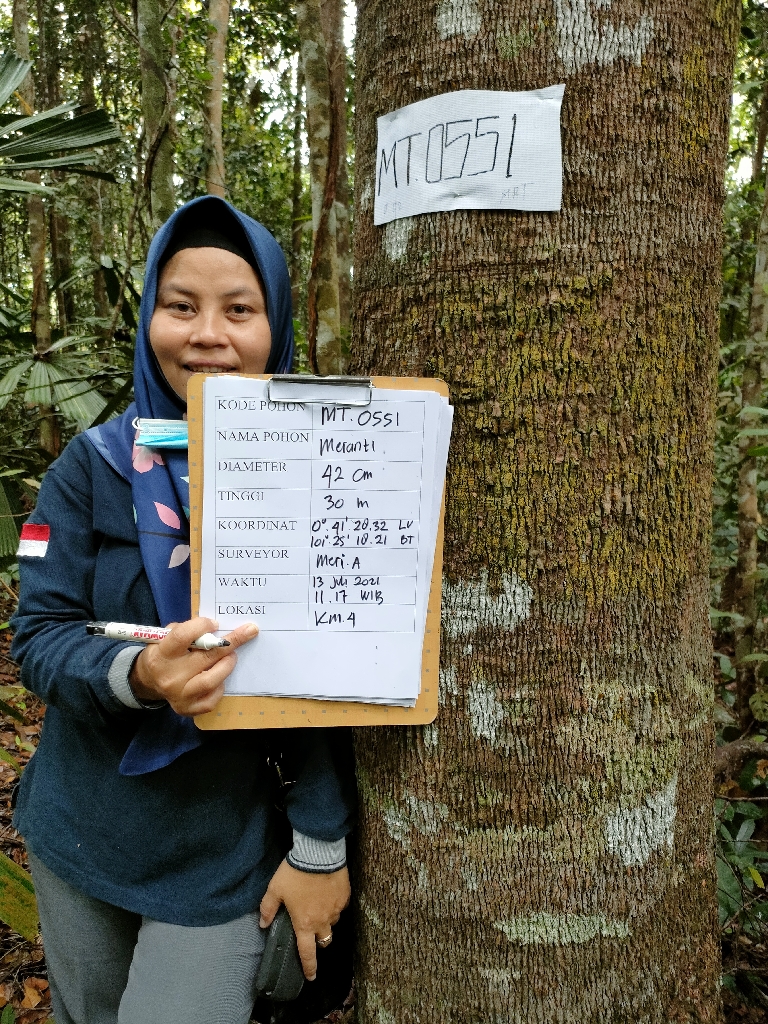 MT.0551
KODE POHON MT. 0551
NAMA POHON Meranti
DIAMETER 42 cm
TINGGI 30 m
KOORDINAT 0° 41' 28.32 LU
101° 25' 18.21 BT
SURVEYOR Meri.A
WAKTU 13 Juli 2021
11.17 WIB
LOKASI Km.4